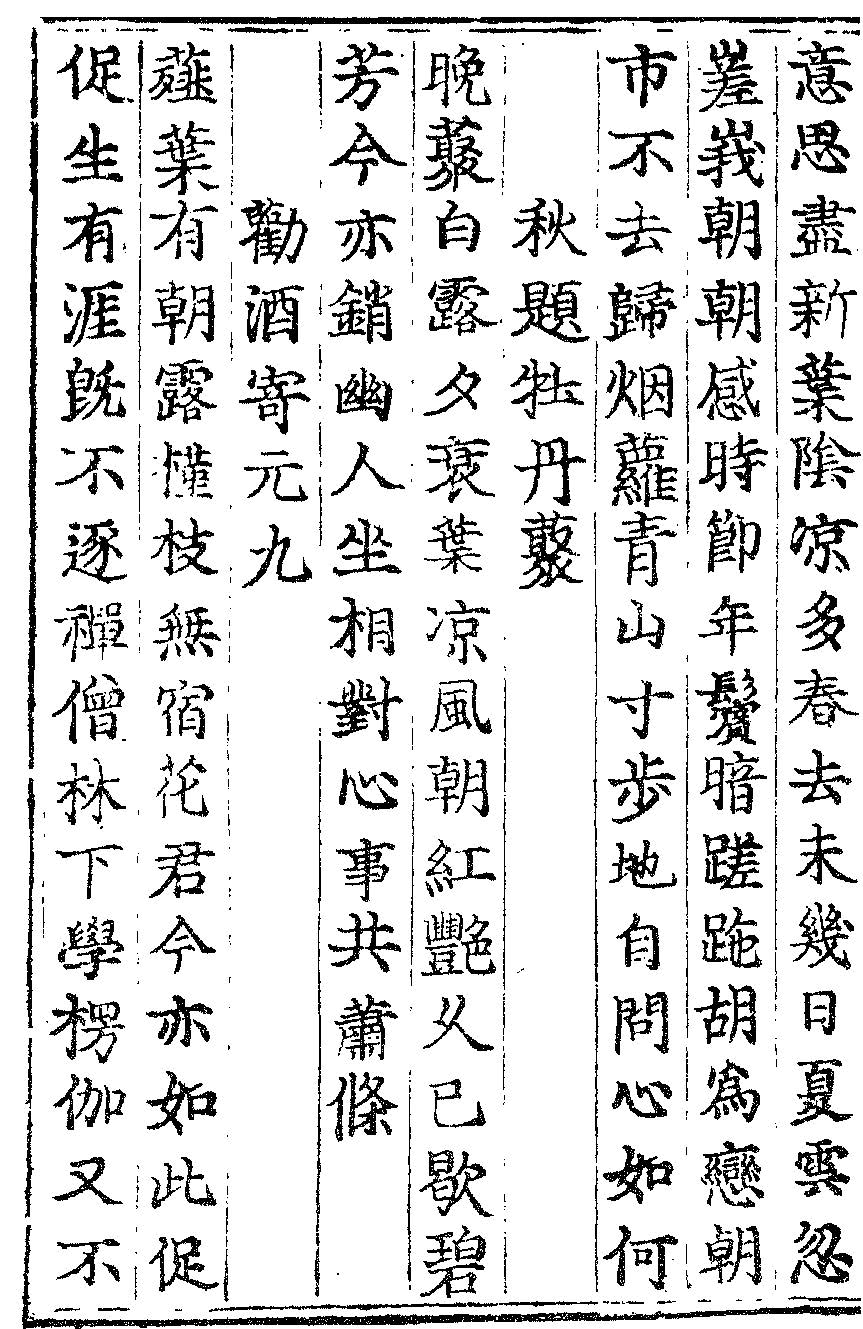 意思盡新葉陰凉多春去未幾日夏雲忽
嵳峩朝朝感時節年鬢暗蹉跎胡爲戀朝
市不去歸烟蘿青山寸步地自問心如何
秋題牡丹藂
晚藂白露夕衰葉凉風朝紅艷乆已歇碧
芳今亦銷幽人坐相對心事共蕭條
勸酒寄元九
薤葉有朝露槿枝無宿花君今亦如此促
促生有涯旣不逐禪僧林下學楞伽又不